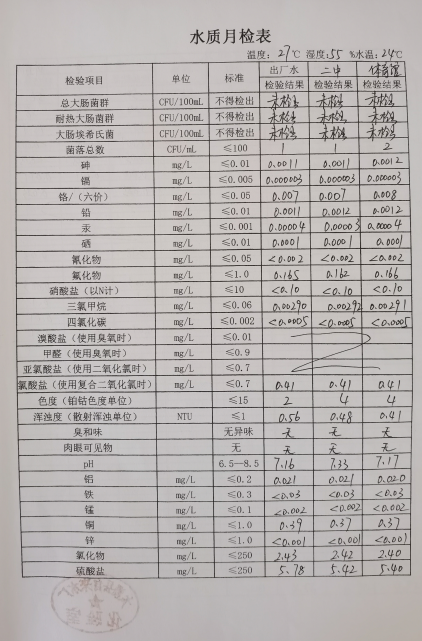 水质月检表
温度: 27℃ 湿度:55 %水温:24℃
检验项目 单位 标准 出厂水 二中 体育馆
检验结果 检验结果 检验结果
总大肠菌群 CFU/100mL 不得检出 未检出 未检出 未检出
耐热大肠菌群 CFU/100mL 不得检出 未检出 未检出 未检出
大肠埃希氏菌 CFU/100mL 不得检出 未检出 未检出 未检出
菌落总数 CFU/mL ≤100 1 1 2
砷 mg/L ≤0.01 0.0011 0.0011 0.0012
镉 mg/L ≤0.005 0.000003 0.000003 0.000003
铬/(六价) mg/L ≤0.05 0.007 0.007 0.008
铅 mg/L ≤0.01 0.0011 0.0012 0.0012
汞 mg/L ≤0.001 0.00004 0.00003 0.00004
硒 mg/L ≤0.01 0.0001 0.0001 0.0001
氰化物 mg/L ≤0.05 <0.002 <0.002 <0.002
氟化物 mg/L ≤1.0 0.165 0.162 0.166
硝酸盐(以N计) mg/L ≤10 <0.10 <0.10 <0.10
三氯甲烷 mg/L ≤0.06 0.00290 0.00292 0.00291
四氯化碳 mg/L ≤0.002 <0.0005 <0.0005 <0.0005
溴酸盐(使用臭氧时) mg/L ≤0.01
甲醛(使用臭氧时) mg/L ≤0.9
亚氯酸盐(使用二氧化氯时) mg/L ≤0.7
氯酸盐(使用复合二氧化氯时) mg/L ≤0.7 0.41 0.41 0.41
色度(铂钴色度单位) ≤15 2 4 4
浑浊度(散射浑浊单位) NTU ≤1 0.56 0.48 0.41
臭和味 无异味 无 无 无
肉眼可见物 无 无 无 无
pH 6.5—8.5 7.16 7.33 7.17
铝 mg/L ≤0.2 0.021 0.021 0.020
铁 mg/L ≤0.3 <0.03 <0.03 <0.03
锰 mg/L ≤0.1 <0.002 <0.002 <0.002
铜 mg/L ≤1.0 0.39 0.37 0.37
锌 mg/L ≤1.0 <0.001 <0.001 <0.001
氯化物 mg/L ≤250 2.43 2.42 2.40
硫酸盐 mg/L ≤250 5.78 5.42 5.40